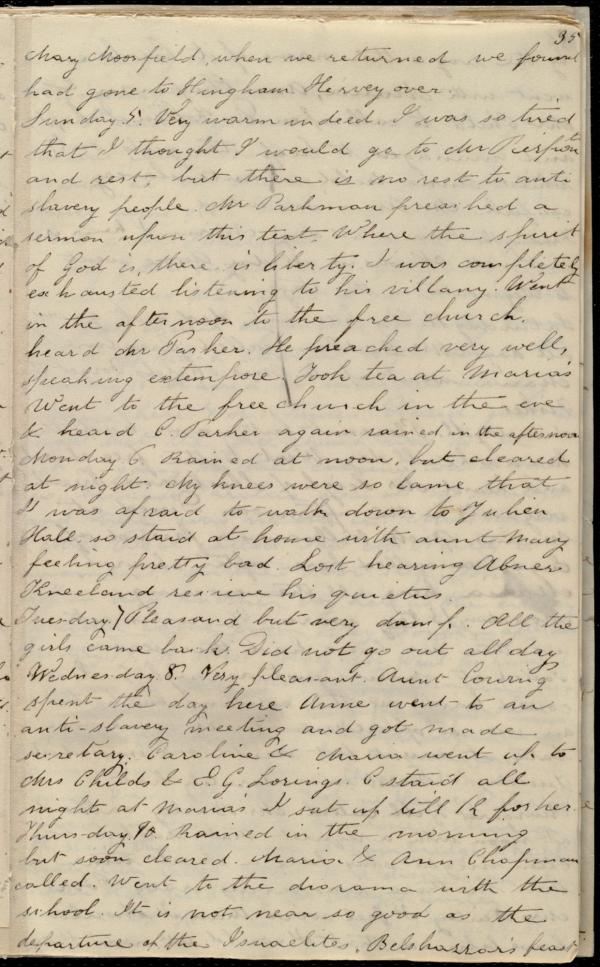 35
Mary Moorfield, when we returned we found
had gone to Hingham Hervey over.
Sunday 5. Very warm indeed. I was so tired
that I thought I would go to Mr Pierpont
and rest, but there is no rest to anti
slavery people. Mr Parkman preached a
sermon upon this text, Where the spirit
of God is, there is liberty. I was completely
exhausted listening to his villany. Went
in the afternoon to the free church.
heard Mr Parker. He preached very well,
speaking extempore. Took tea at Maria's
Went to the free church in the eve
& heard C. Parker again rained in the afternoon
Monday 6 Rained at noon, but cleared
at night. My knees were so lame that
I was afraid to walk down to Julien
Hall. so staid at home with aunt Mary
feeling pretty bad. Lost hearing Abner
Kneeland recieve his quietus.
Tuesday 7 Pleasand but very damp. All the
girls came back. Did not go out all day
Wednesday 8. Very pleasant. Aunt Couring
spent the day here. Anne went to an
anti-slavery meeting and got made
secretary. Caroline & Maria went up to
Mrs Childs & E. G. Lorings. C staid all
night at Marias I sat up till 12 for her.
Thursday, Rained in the morning
but soon cleared. Maria & Ann Chapman
called. Went to the diorama with the
school. It is not near so good as the
departure of the Israelites. Belshazzar's feast